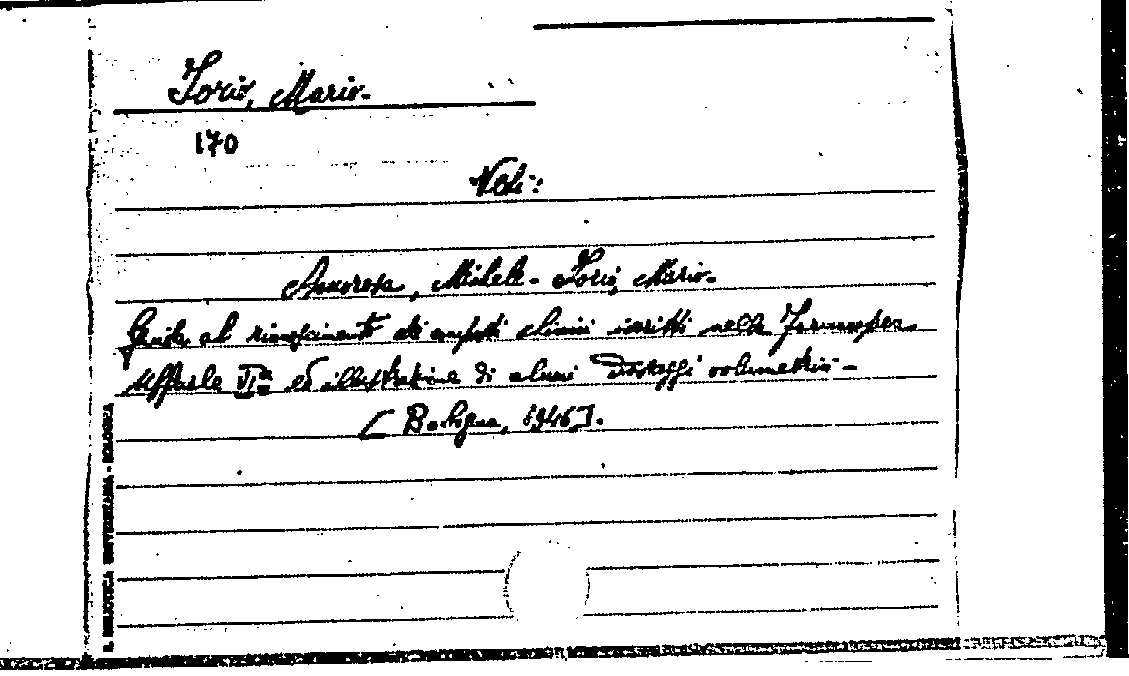 Iorio, Mario.
170
Vedi:
Amorosa, Michele - Iorio, Mario.
Guida al riconoscimento dei composti chimici inscritti nella Farmacopea
Ufficiale VIa ed illustrazione di alcuni Dosaggi volumetrici -
[Bologna, 1946].
R. BIBLIOTECA UNIVERSITARIA - BOLOGNA